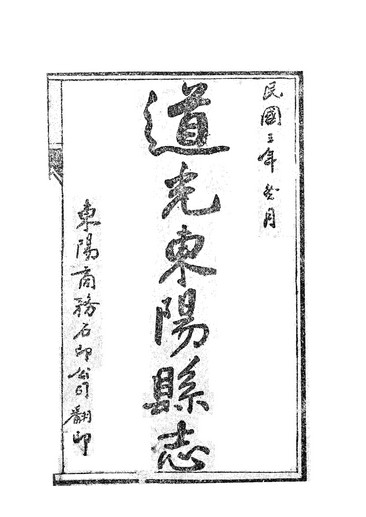 民國三年癸月
道光東陽縣志
東陽商務石印公司翻印